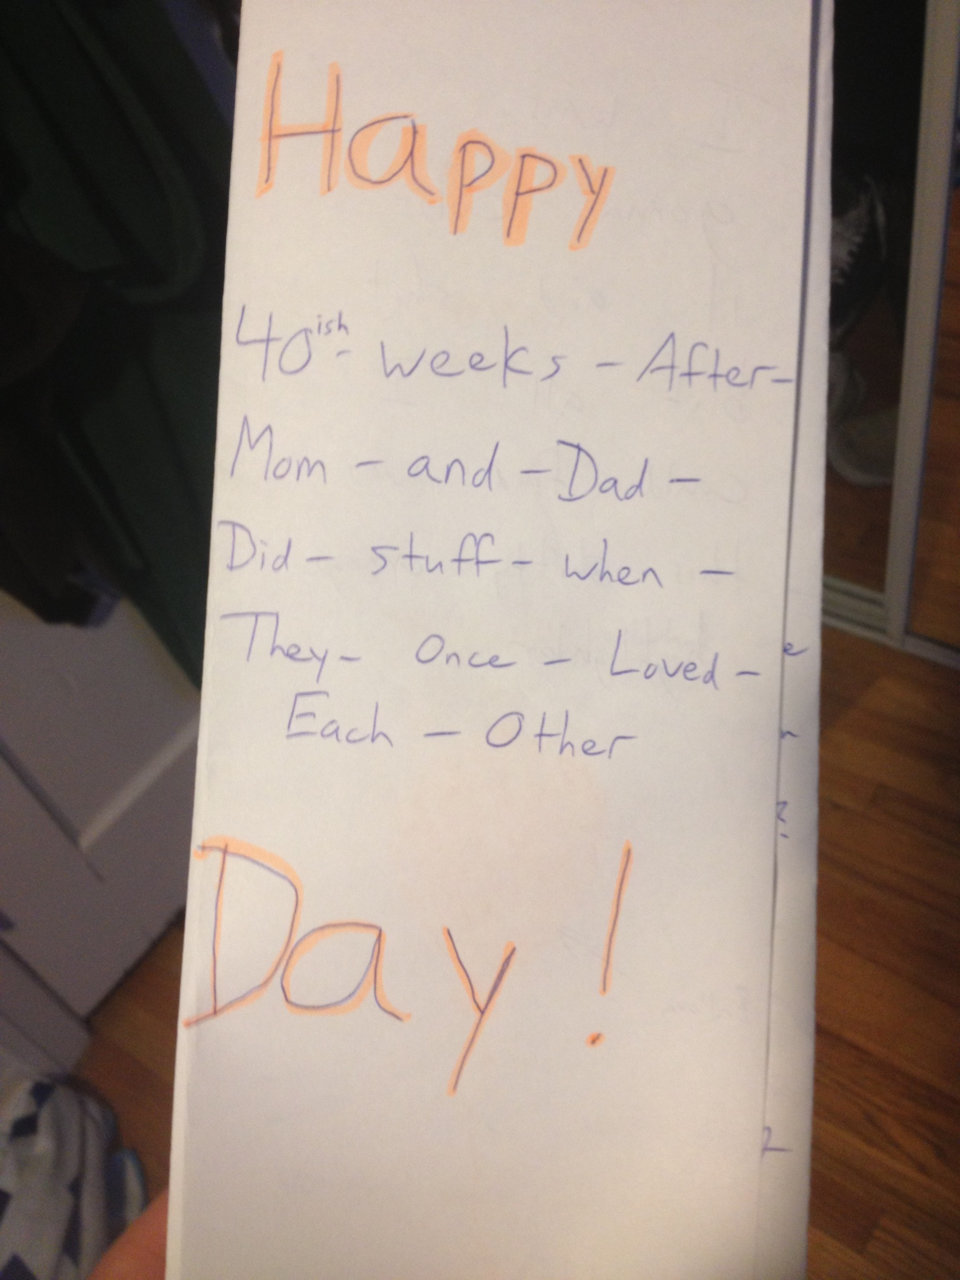 Happy
40ish- weeks - After-
Mom - and - Dad -
Did - stuff - when -
They - Once - Loved -
Each - Other
Day!